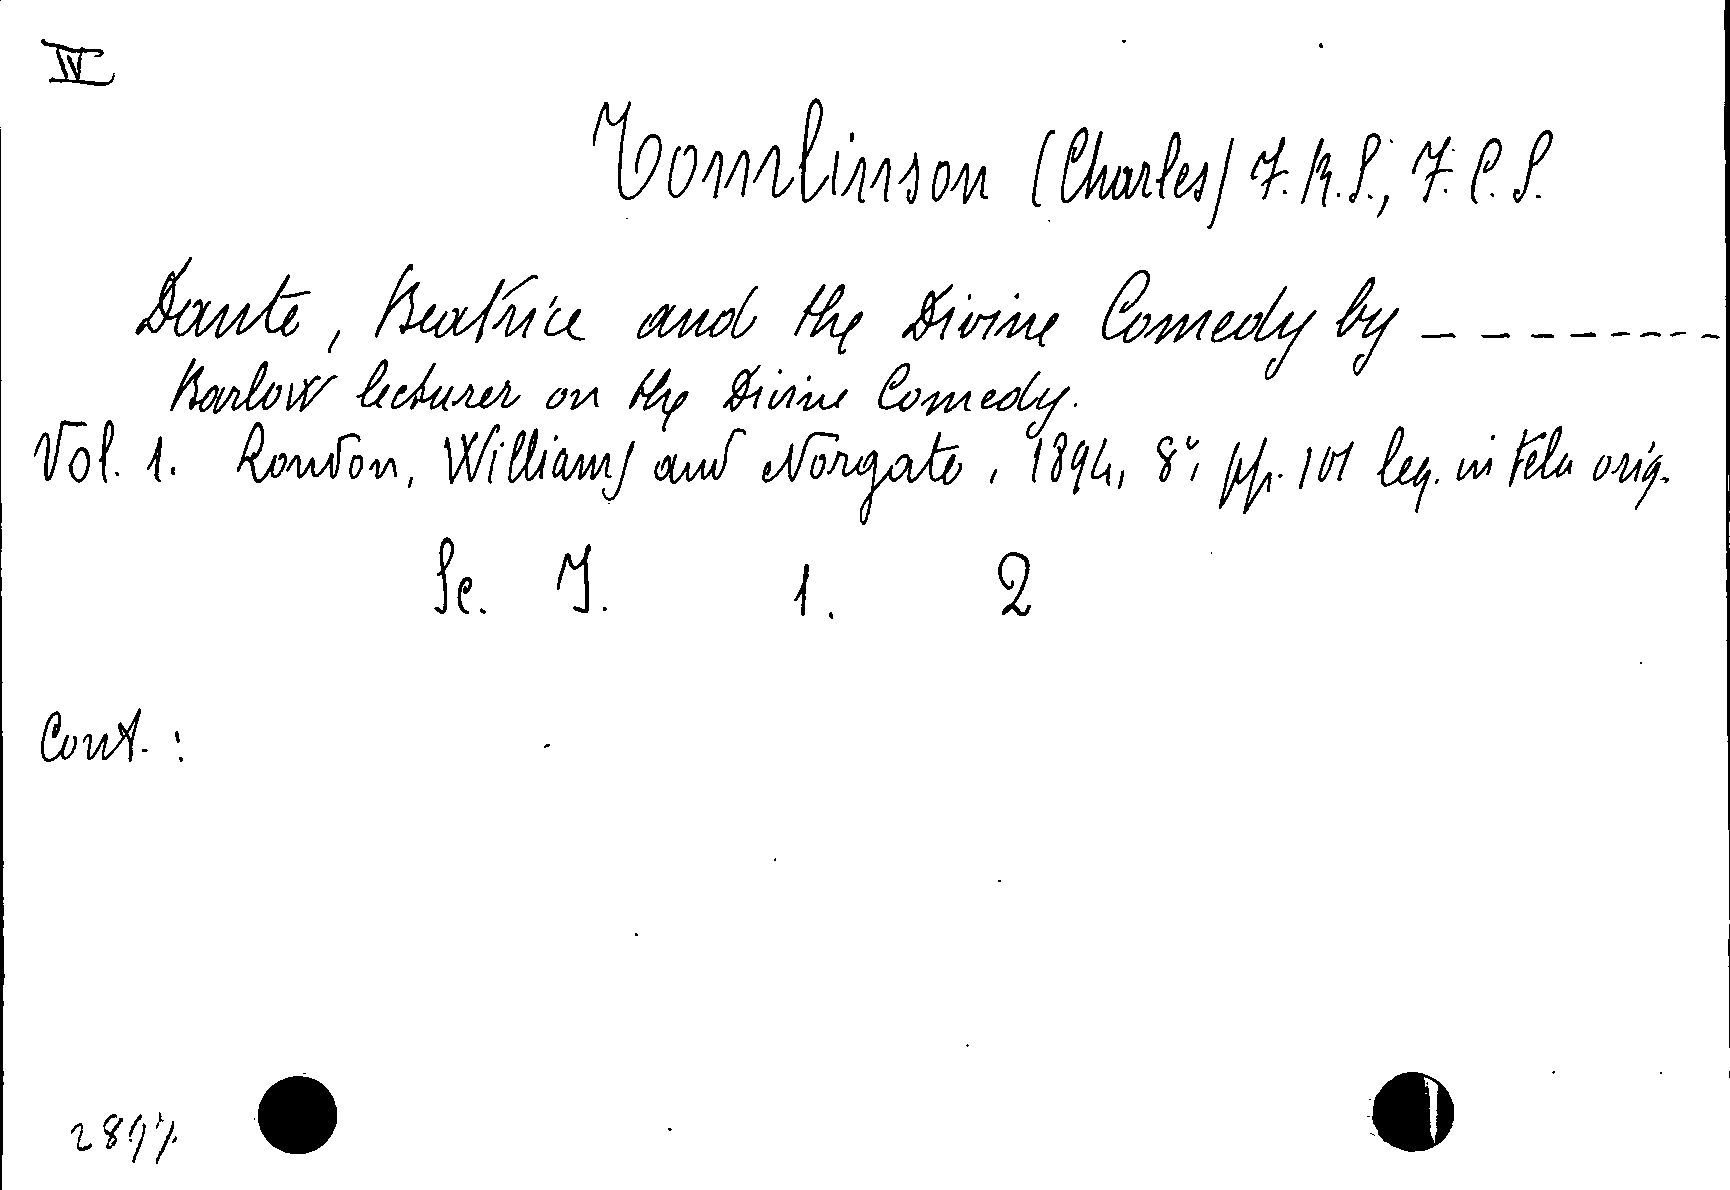 IV
Tomlinson (Charles) F.R.S., F.C.S.
Dante, Beatrice and the Divine Comedy by --------
Barlow lecturer on the Divine Comedy.
Vol. 1. London, Williams and Norgate, 1894, 8°, pp. 101 leg. in tela orig.
Sc. I. 1. 2
Cont. :